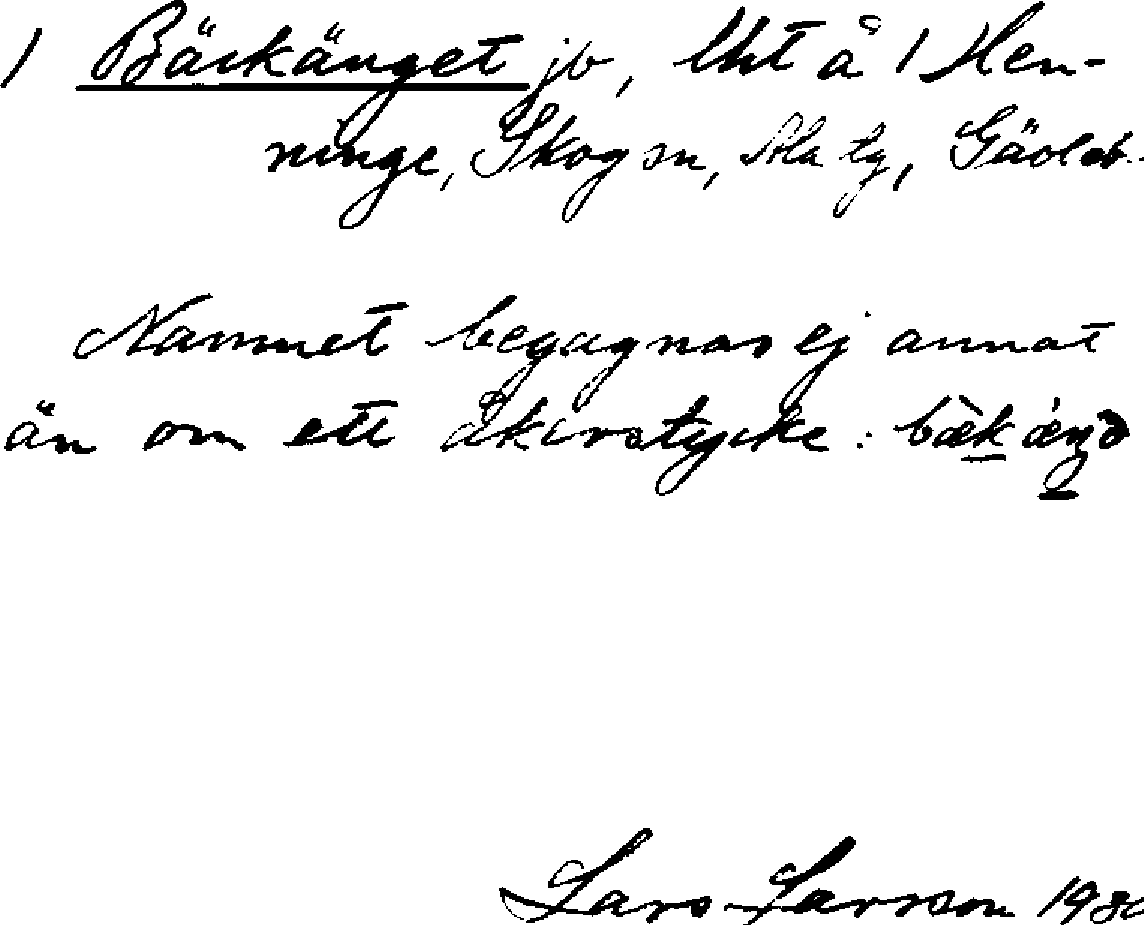 1 Bäckänget jb, Uht å 1 Hen-
ninge, Skog sn, Ala tg, Gävleb.
Namnet begagnas ej annat
än om ett åkerstycke:
Lars Larsson